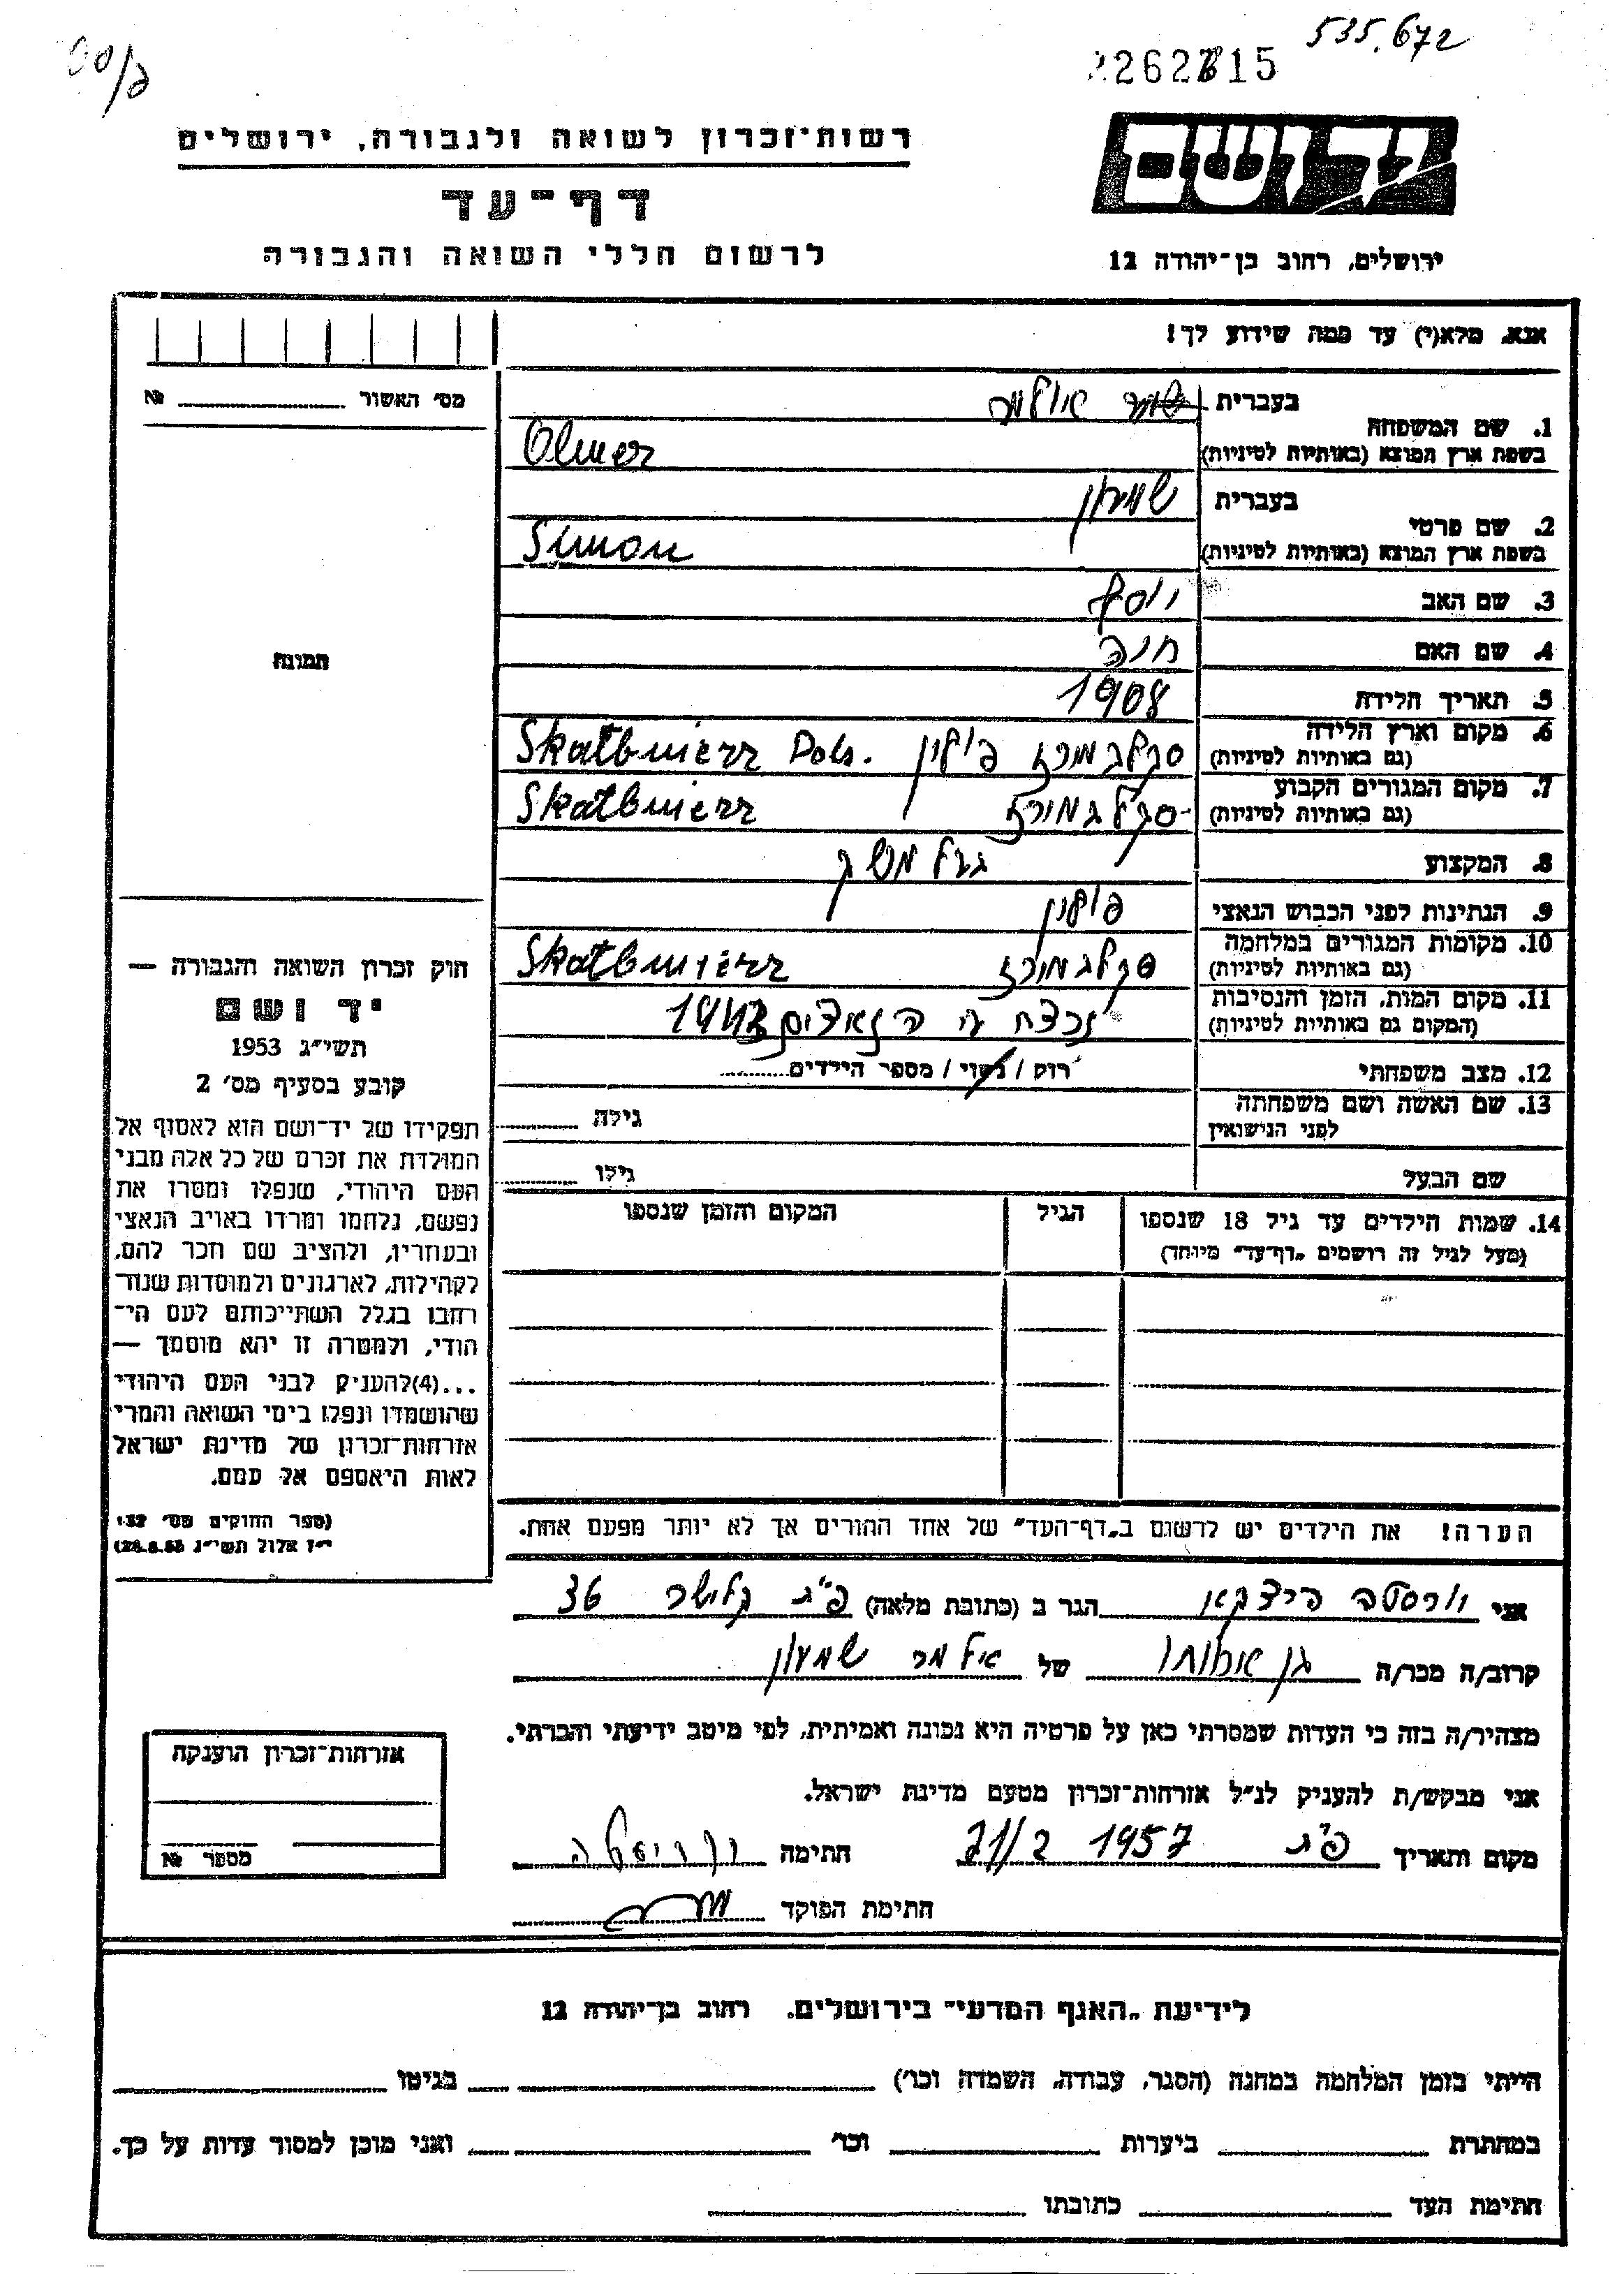 535.672
262715
יד ושם
ירושלים, רחוב בן־יהודה 12
רשות־זכרון לשואה ולגבורה, ירושלים
דף־עד
לרשום חללי השואה והגבורה
אנא, מלא(י) עד כמה שידוע לך!
מס׳ האשור № 
1. שם המשפחה
בעברית אולמר
בשפת ארץ המוצא (באותיות לטיניות) Olmer
2. שם פרטי
בעברית שמעון
בשפת ארץ המוצא (באותיות לטיניות) Simon
3. שם האב יוסף
4. שם האם חנה
5. תאריך הלידה 1908
6. מקום וארץ הלידה סקלבמורז פולין Skatbmierz Pols.
(גם באותיות לטיניות)
7. מקום המגורים הקבוע סקלבמורז Skatbmierz
(גם באותיות לטיניות)
8. המקצוע
9. הנתינות לפני הכבוש הנאצי פולין
10. מקומות המגורים במלחמה סקלבמורז Skatbmierz
(גם באותיות לטיניות)
11. מקום המות, הזמן והנסיבות נרצח ע״י הנאצים 1943
(המקום גם באותיות לטיניות)
12. מצב משפחתי רוק / נשוי / מספר הילדים
13. שם האשה ושם משפחתה גילה
לפני הנישואין
שם הבעל גילו
14. שמות הילדים עד גיל 18 שנספו הגיל המקום והזמן שנספו
(מעל לגיל זה רושמים „דף־עד״ מיוחד)
הערה! את הילדים יש לרשום ב„דף־העד״ של אחד ההורים אך לא יותר מפעם אחת.
תמונה
חוק זכרון השואה והגבורה —
יד ושם
תשי״ג 1953
קובע בסעיף מס׳ 2
תפקידו של יד־ושם הוא לאסוף אל
המולדת את זכרם של כל אלה מבני
העם היהודי, שנפלו ומסרו את
נפשם, נלחמו ומרדו באויב הנאצי
ובעוזריו, ולהציב שם וזכר להם,
לקהילות, לארגונים ולמוסדות שנח־
רבו בגלל השתייכותם לעם הי־
הודי, ולמטרה זו יהא מוסמך —
...(4)להעניק לבני העם היהודי
שהושמדו ונפלו בימי השואה והמרי
אזרחות־זכרון של מדינת ישראל
לאות היאספם אל עמם.
(ספר החוקים מס׳ 132
י״ז אלול תשי״ג 28.8.53)
אני הגר ב (כתובת מלאה) פ״ת 36
קרוב/ה מכר/ה בן אחותו של אולמר שמעון
מצהיר/ה בזה כי העדות שמסרתי כאן על פרטיה היא נכונה ואמיתית, לפי מיטב ידיעתי והכרתי.
אני מבקש/ת להעניק לנ״ל אזרחות־זכרון מטעם מדינת ישראל.
מקום ותאריך פ״ת 1957 חתימה
חתימת הפוקד
אזרחות־זכרון הוענקה
מספר №
לידיעת „האגף המדעי״ בירושלים, רחוב בן־יהודה 12
הייתי בזמן המלחמה במחנה (הסגר, עבודה, השמדה וכו׳) בגיטו
במחתרת ביערות וכו׳ ואני מוכן למסור עדות על כך.
חתימת העד כתובתו